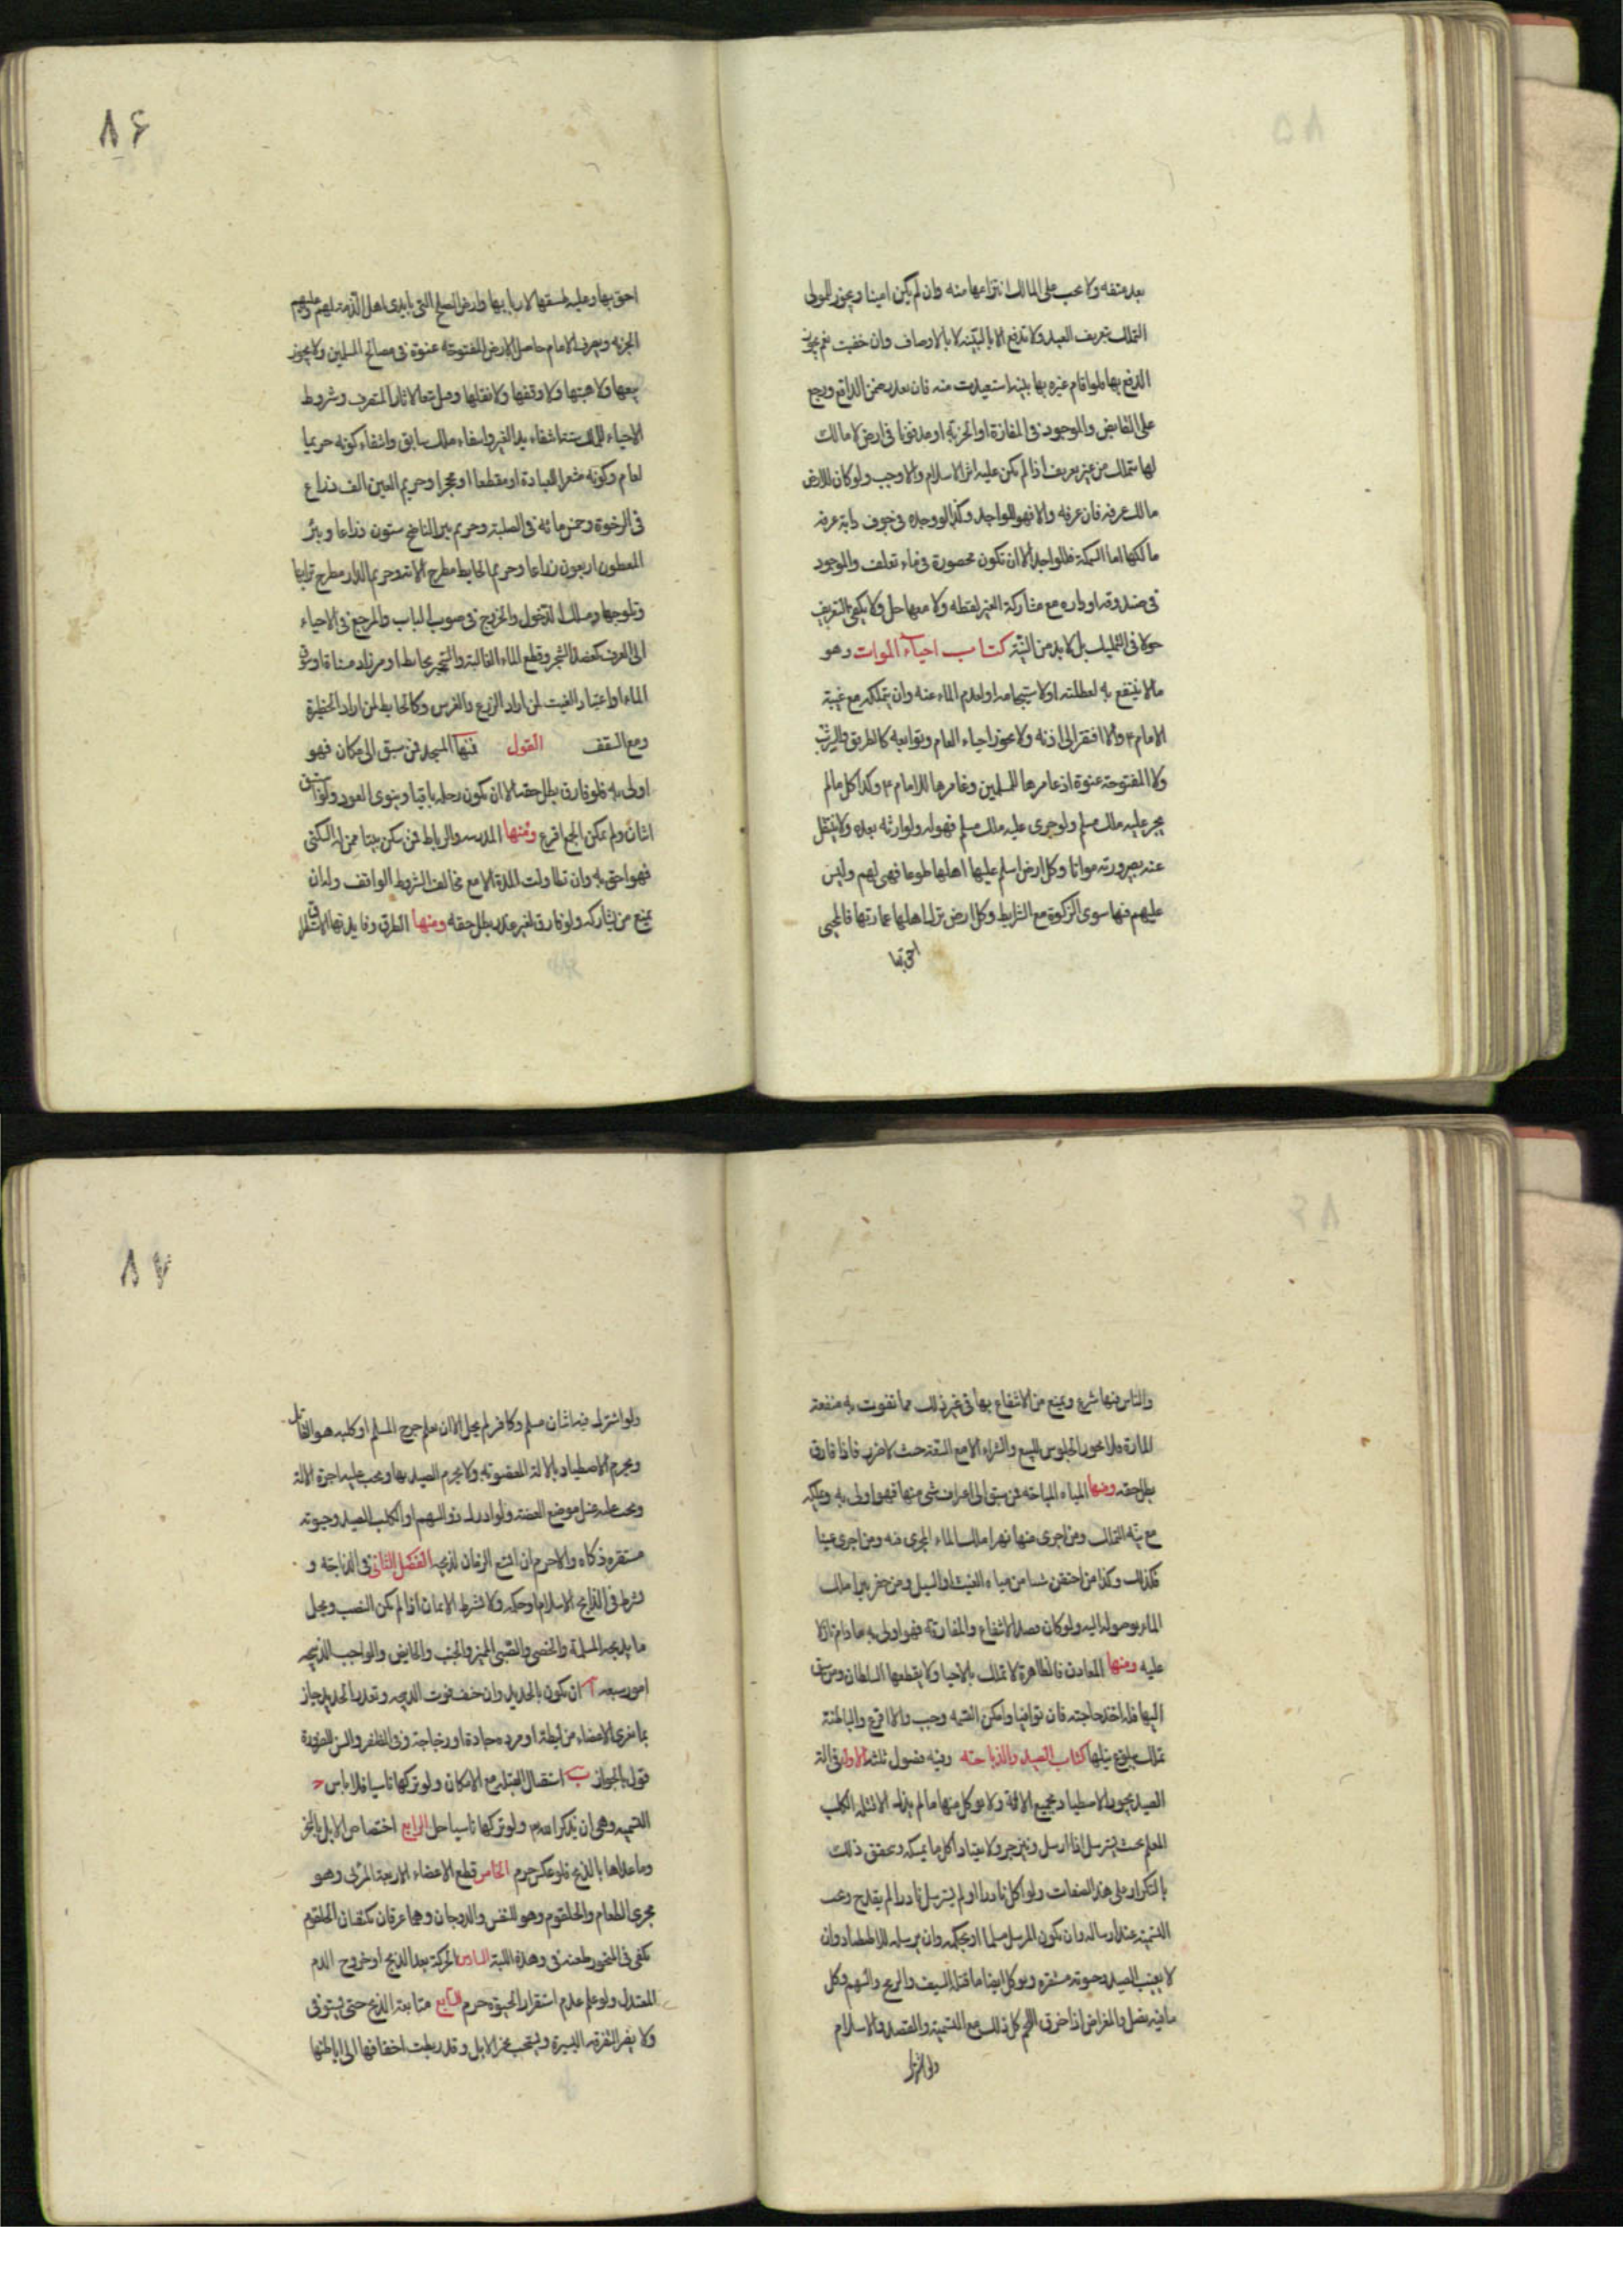 بعد عتقه ولا يجب على المالك انتزاعها منه وان لم يكن امينا ويجوز للمولى
التملك بتعريف العبد ولا تدفع الا بالبينة لا بالاوصاف وان خفيت نعم يجوز
الدفع بها فلو اقام غيره بها بينة استعيدت منه فان تعذر ضمن الدافع ورجع
على القابض والموجود فى المفازة او الخربة او مدفونا فى ارض لا مالك
لها يتملك من غير تعريف اذا لم يكن عليه اثر الاسلام والا وجب ولو كان للارض
مالك عرفه فان عرفه والا فهو للواجد وكذا لو وجده فى جوف دابة عرفه
مالكها اما السمكة فللواجد الا ان تكون محصورة فى ماء تعلف والموجود
فى صندوقه او داره مع مشاركة الغير لقطة ولا معها حل ولا يكفى التعريف
حولا فى التمليك بل لا بد من النية كتاب احياء الموات وهو
مالا ينتفع به لعطلته او لاستيجامه او لعدم الماء عنه وان يتملكه مع غيبة
الامام ع والا افتقر الى اذنه ولا يجوز احياء العامر وتوابعه كالطريق والشرب
ولا المفتوحة عنوة اذ عامرها للمسلمين وغامرها للامام ع وكذا كل مالم
يجر عليه ملك مسلم ولو جرى عليه ملك مسلم فهو له ولوارثه بعده ولا ينتقل
عنه بصيرورته مواتا وكل ارض اسلم عليها اهلها طوعا فهى لهم وليس
عليهم فيها سوى الزكوة مع الشرايط وكل ارض ترك اهلها عمارتها فالمحيى
احق بها
٨٦
احق بها وعليه طسقها لاربابها وارض الصلح التى بايدى اهل الذمة لهم وعليهم
الجزية ويصرف الامام حاصل الارض المفتوحة عنوة فى مصالح المسلمين ولا يجوز
بيعها ولا هبتها ولا وقفها ولا نقلها وقيل تبعا لاثار المتصرف وشروط
الاحياء المملك ستة انتفاء يد الغير وانتفاء ملك سابق وانتفاء كونه حريما
لعامر وكونه مشعرا للعبادة او مقطعا او محجرا وحريم العين الف ذراع
فى الرخوة وخمسمائة فى الصلبة وحريم بير الناضح ستون ذراعا وبئر
المعطن اربعون ذراعا وحريم الحايط مطرح الاته وحريم الدار مطرح ترابها
وثلوجها ومسلك الدخول والخروج فى صوب الباب والمرجع فى الاحياء
الى العرف كعضد الشجر وقطع المياه الغالبة والتحجير بحايط او مرز او مسناة او سوق
الماء او اعتياد الغيث لمن اراد الزرع والغرس وكالحايط لمن اراد الحظيرة
ومع السقف القول فمنها المسجد فمن سبق الى مكان فهو
اولى به فلو فارق بطل حقه الا ان يكون رحله باقيا وينوى العود ولو توافى
اثنان ولم يمكن الجمع اقرع ومنها المدرسه والرباط فمن سكن بيتا ممن له السكنى
فهو احق به وان تطاولت المدة الا مع مخالفة الشروط الواقف وله ان
يمنع من يشاركه ولو فارق لغير عذر بطل حقه ومنها الطرق وفايدتها الاستطراق
والناس فيها شرع ويمنع من الانتفاع بها فى غير ذلك مما تفوت به منفعة
المارة فلا يجوز الجلوس للبيع والشراء الا مع السعة حيث لا ضرر فاذا فارق
بطل حقه ومنها المياه المباحة فمن سبق الى اغتراف شى منها فهو اولى به ويملكه
مع نية التملك ومن اجرى منها نهرا ملك الماء المجرى فيه ومن اجرى عينا
فكذلك وكذا من احتقن شيا من مياه الغيث او السيل ومن حفر بيرا ملك
الماء بوصوله اليه ولو كان قصده الانتفاع والمفارقة فهو اولى به ما دام نازلا
عليه ومنها المعادن فالظاهرة لا تملك بالاحيا ولا يقطعها السلطان ومن سبق
اليها فله اخذ حاجته فان توافيا وامكن القسمة وجب والا اقرع والباطنة
تملك ببلوغ نيلها كتاب الصيد والذباحة وفيه فصول ثلثة الاول فى الة
الصيد يجوز الاصطياد بجميع الالة ولا يوكل منها ما لم يذك الا قتله الكلب
المعلم بحيث يسترسل اذا ارسل وينزجر ولا يعتاد اكل ما يمسكه ويتحقق ذلك
بالتكرار على هذه الصفات ولو اكل نادرا او لم يسترسل نادرا لم يقدح ويجب
التسمية عند ارساله وان يكون المرسل مسلما او بحكمه وان يرسله للاصطياد وان
لا يغيب الصيد وحيوته مستقره ويوكل ايضا ما قتله السيف والرمح والسهم وكل
ما فيه نصل والمعراض اذا خرق اللحم كل ذلك مع التسمية والقصد والاسلام
ولو اشترك
٨٧
ولو اشترك فيه اثنان مسلم وكافر لم يحل الا ان يعلم جرح المسلم او كلبه هو القاتل
ويحرم الاصطياد بالالة المغصوبة ولا يحرم الصيد بها ويجب عليه اجرة الالة
ويجب عليه غسل موضع العضة ولو ادرك ذو السهم او الكلب الصيد وحيوته
مستقره ذكاه والا حرم ان اتسع الزمان لذبحه الفصل الثانى فى الذباحة و
يشترط فى الذابح الاسلام او حكمه ولا يشترط الايمان اذا لم يكن النصب ويحل
ما يذبحه المسلمة والخصى والصبى المميز والجنب والحايض والواجب الذبيحه
امور سبعه آ ان يكون بالحديد وان خيف فوت الذبيحه وتعذر الحديد جاز
بما يفرى الاعضاء من ليطة او مروه حادة او زجاجة وفى الظفر والسن للضرورة
قول بالجواز ب استقبال القبلة مع الامكان ولو تركها ناسيا فلا باس ج
التسميه وهى ان يذكر اسم الله ولو تركها ناسيا حل الرابع اختصاص الابل بالنحر
وما عداها بالذبح فلو عكس حرم الخامس قطع الاعضاء الاربعة المرئ وهو
مجرى الطعام والحلقوم وهو للنفس والودجان وهما عرقان يكتنفان الحلقوم
يكفى فى المنحور طعنه فى وهدة اللبة السادس الحركة بعد الذبح او خروج الدم
المعتدل ولو علم عدم استقرار الحيوة حرم السابع متابعة الذبح حتى يستوفى
ولا يضر التفرقه اليسيرة ويستحب نحر الابل وقد ربطت اخفافها الى اباطها